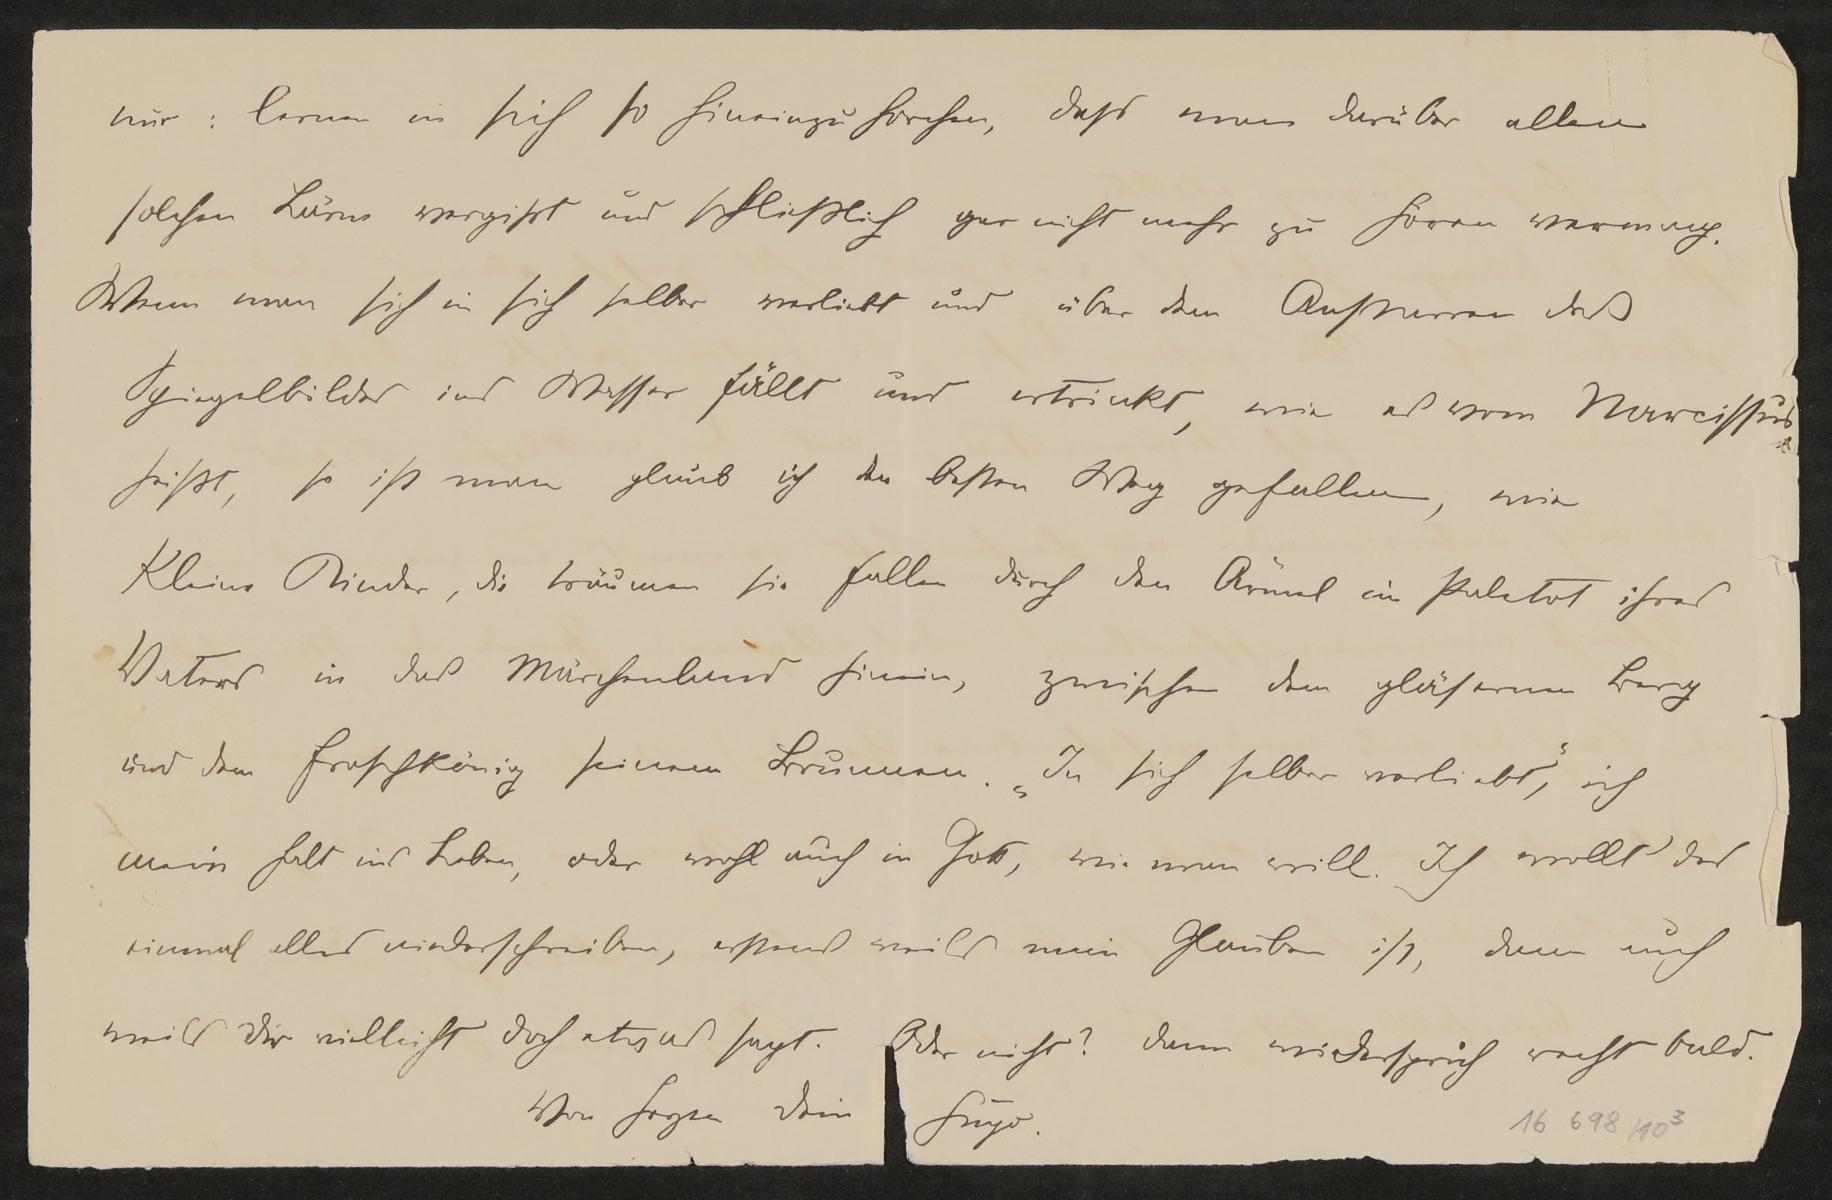 nur: lernen in sich so hineinzuhorchen, dass man darüber allen
solchen Lärm vergisst und schließlich gar nicht mehr zu hören vermag.
Wenn man sich in sich selber verliebt und über dem Anstarren des
Spiegelbildes ins Wasser fällt und ertrinkt, wie es vom Narcissus
heißt, so ist man glaub ich den besten Weg gefallen, wie
Kleine Kinder, die träumen sie fallen durch den Ärmel im Paletot ihres
Vaters in das Märchenland hinein, zwischen dem gläsernen Berg
und dem Froschkönig seinem Brunnen. „In sich selber verliebt“, ich
mein halt ins Leben, oder wohl auch in Gott, wie man will. Ich wollt' das
einmal alles niederschreiben, erstens weils mein Glauben ist, dann auch
weils Dir vielleicht doch etwas sagt. Oder nicht? dann widersprich recht bald.
Von Herzen Dein Hugo.
16 698/10³